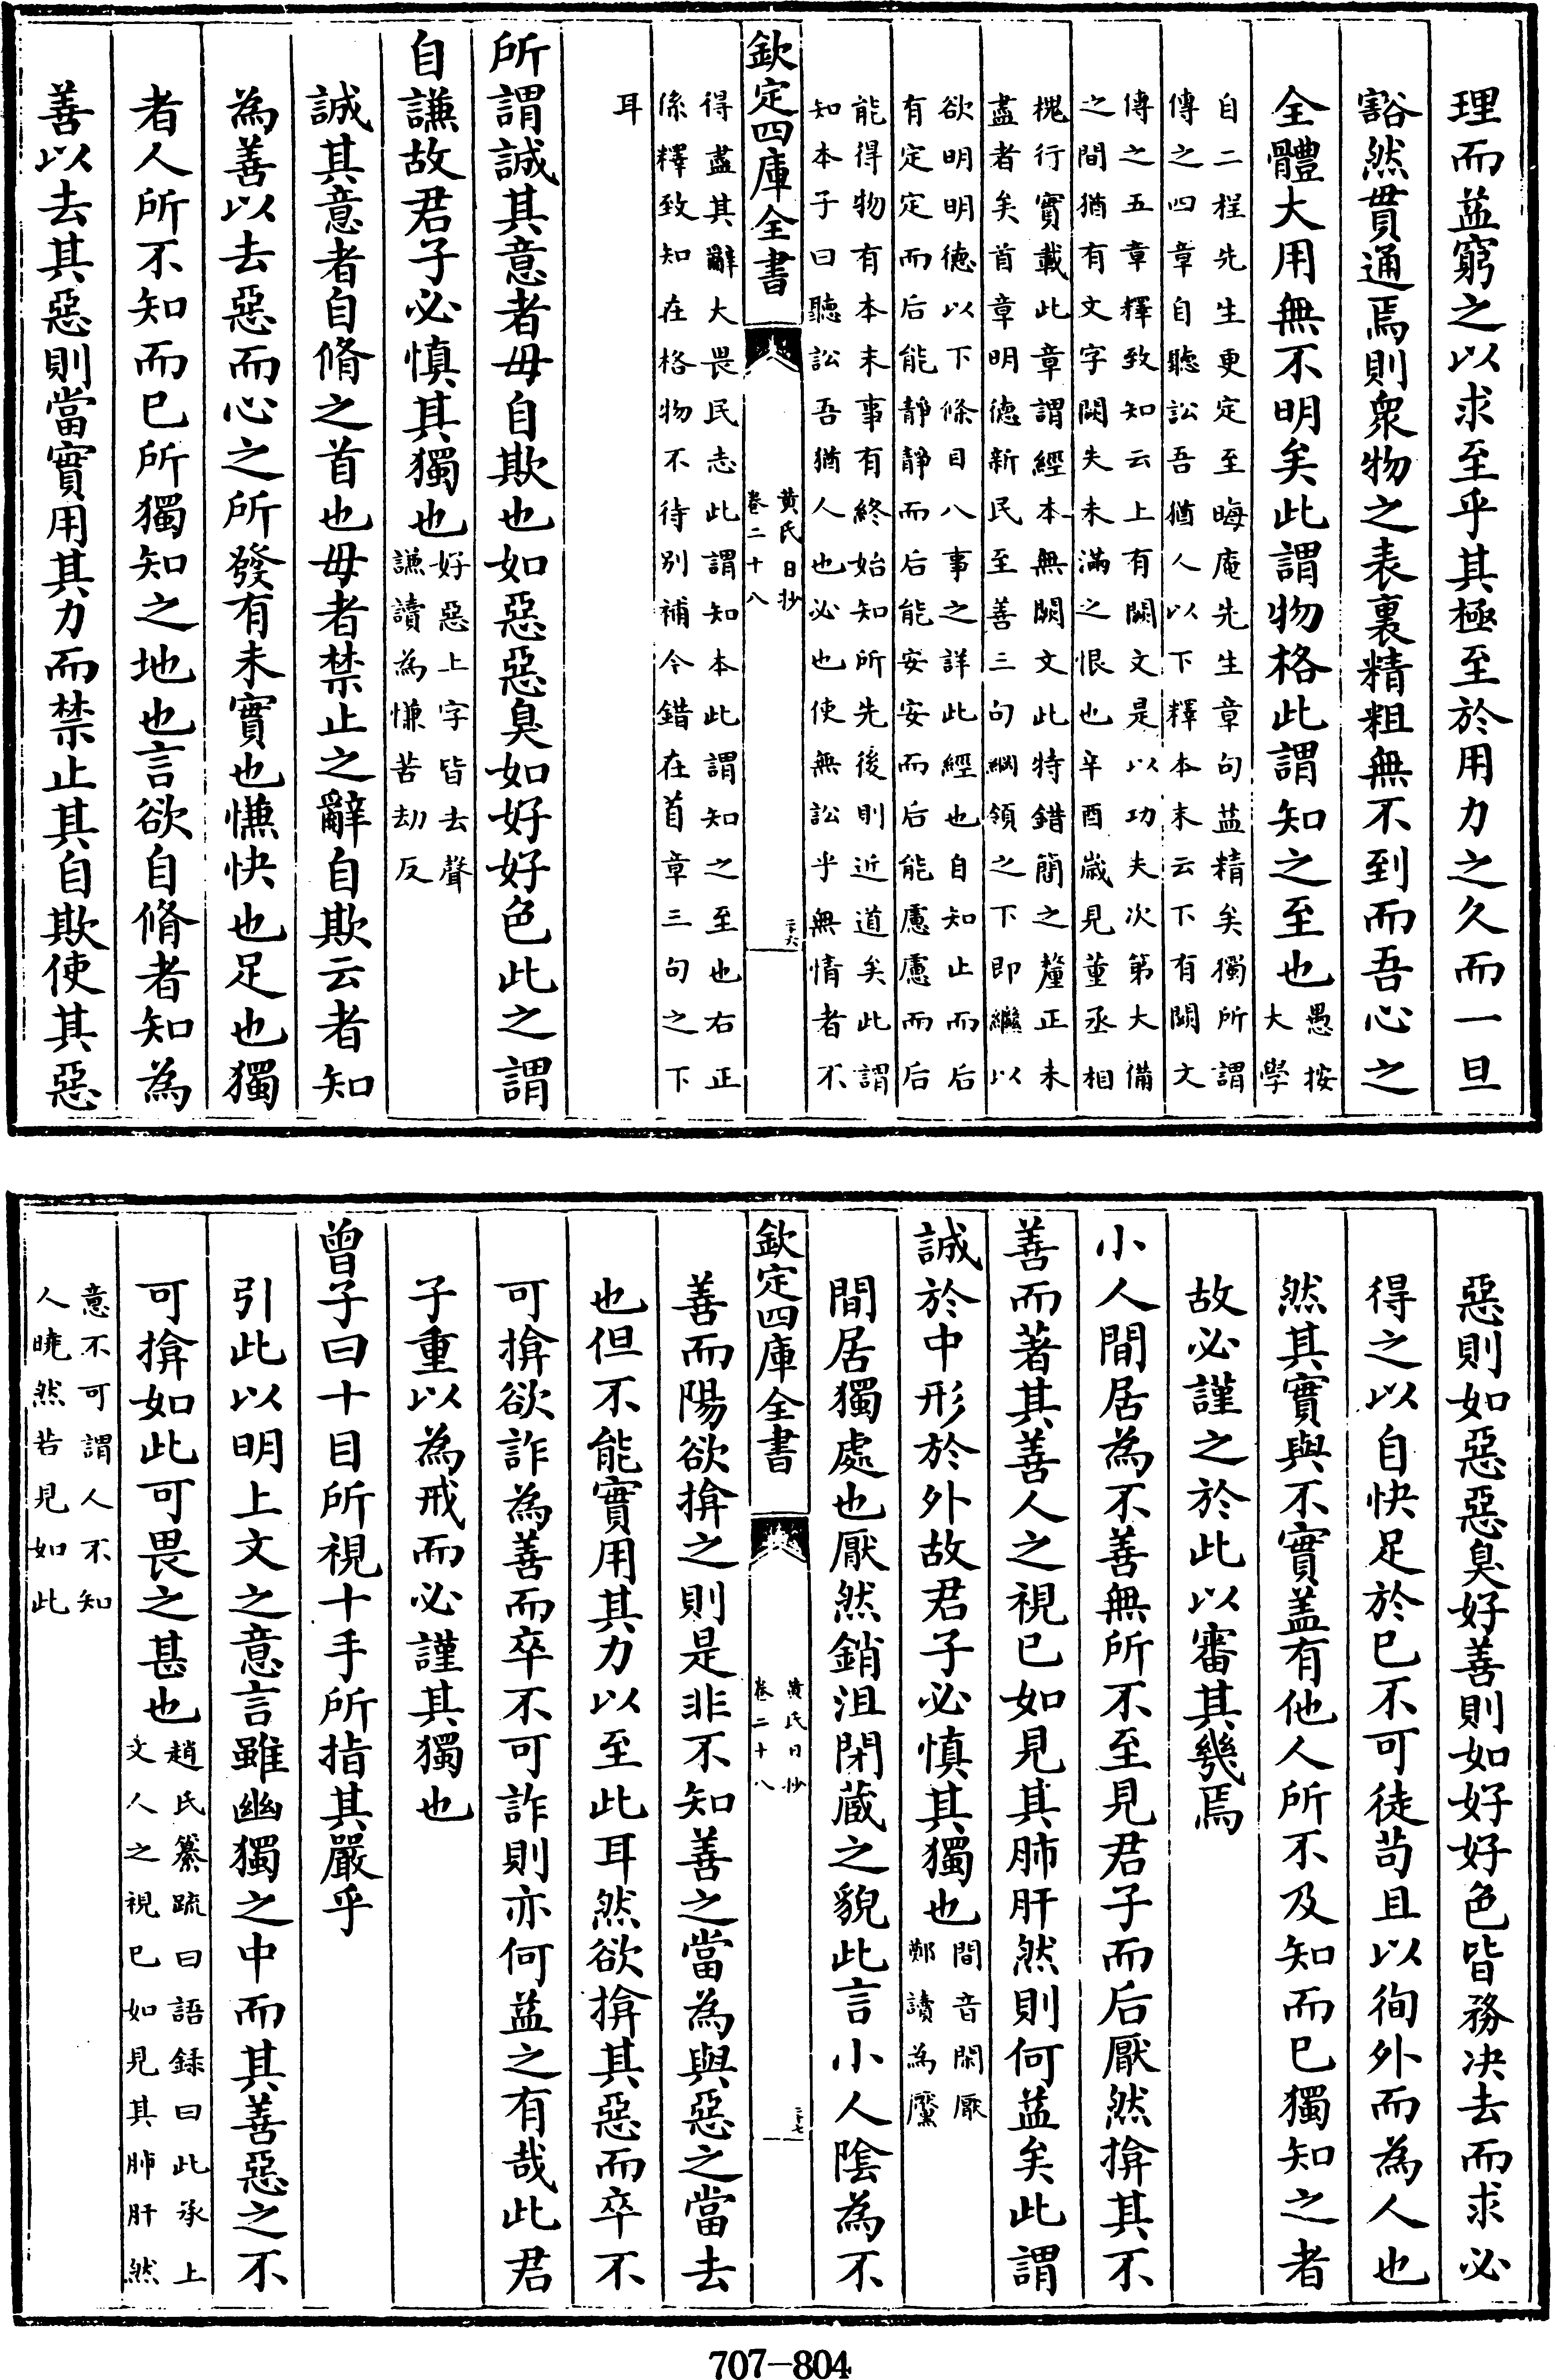 理而益窮之以求至乎其極至於用力之久而一旦
豁然貫通焉則衆物之表裏精粗無不到而吾心之
全體大用無不明矣此謂物格此謂知之至也愚按
大學
自二程先生更定至晦庵先生章句益精矣獨所謂
傳之四章自聽訟吾猶人以下釋本末云下有闕文
傳之五章釋致知云上有闕文是以功夫次第大備
之間猶有文字闕失未滿之恨也辛酉歲見董丞相
槐行實載此章謂經本無闕文此特錯簡之釐正未
盡者矣首章明德新民至善三句綱領之下即繼以
欲明明德以下條目八事之詳此經也自知止而后
有定定而后能靜靜而后能安安而后能慮慮而后
能得物有本末事有終始知所先後則近道矣此謂
知本子曰聽訟吾猶人也必也使無訟乎無情者不
欽定四庫全書
黄氏日抄
卷二十八
二十六
得盡其辭大畏民志此謂知本此謂知之至也右正
係釋致知在格物不待別補今錯在首章三句之下
耳
所謂誠其意者毋自欺也如惡惡臭如好好色此之謂
自謙故君子必慎其獨也好惡上字皆去聲
謙讀為慊苦劫反
誠其意者自脩之首也毋者禁止之辭自欺云者知
為善以去惡而心之所發有未實也慊快也足也獨
者人所不知而已所獨知之地也言欲自脩者知為
善以去其惡則當實用其力而禁止其自欺使其惡
惡則如惡惡臭好善則如好好色皆務決去而求必
得之以自快足於已不可徒苟且以徇外而為人也
然其實與不實盖有他人所不及知而已獨知之者
故必謹之於此以審其幾焉
小人間居為不善無所不至見君子而后厭然揜其不
善而著其善人之視已如見其肺肝然則何益矣此謂
誠於中形於外故君子必慎其獨也間音閑厭
鄭讀為黶
間居獨處也厭然銷沮閉蔵之貌此言小人陰為不
欽定四庫全書
黄氏日抄
卷二十八
二十七
善而陽欲揜之則是非不知善之當為與惡之當去
也但不能實用其力以至此耳然欲揜其惡而卒不
可揜欲詐為善而卒不可詐則亦何益之有哉此君
子重以為戒而必謹其獨也
曾子曰十目所視十手所指其嚴乎
引此以明上文之意言雖幽獨之中而其善惡之不
可揜如此可畏之甚也趙氏纂疏曰語録曰此承上
文人之視已如見其肺肝然
意不可謂人不知
人曉然若見如此
707-804